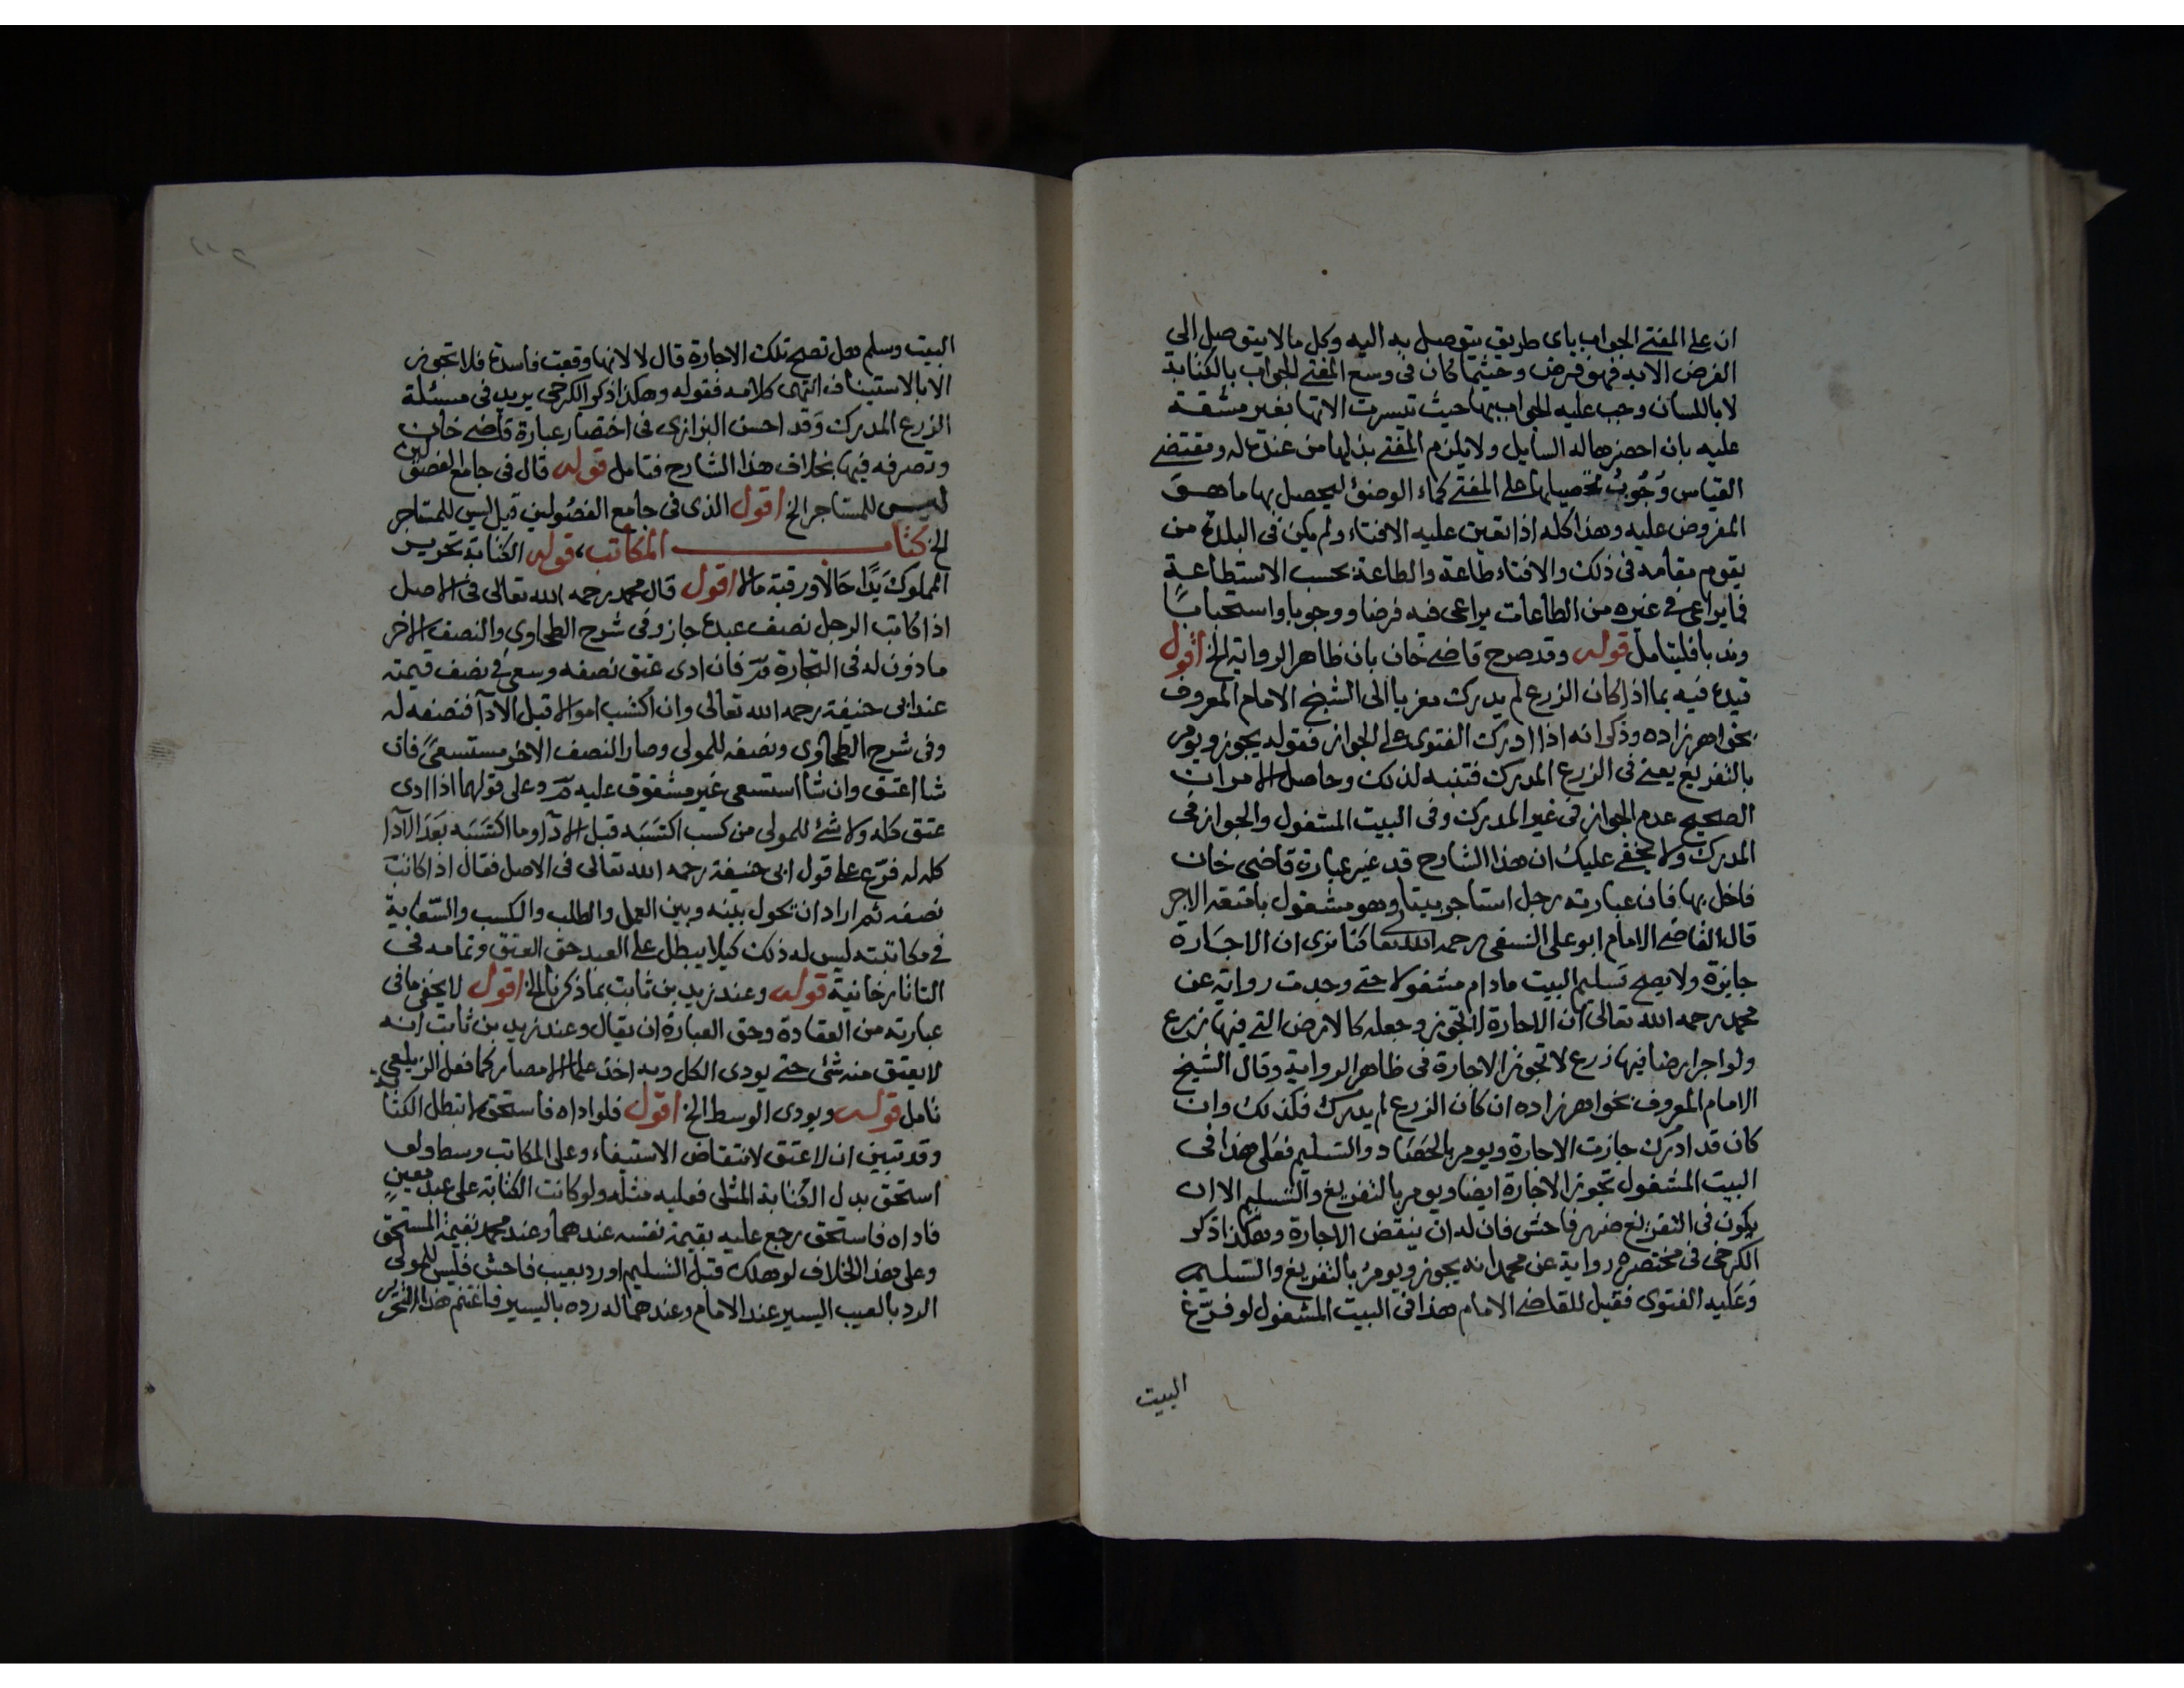 ان على المفتى الجواب باى طريق يتوصل به اليه وكل ما لا يتوصل الى
الفرض الا به فهو فرض وحيثما كان فى وسع المفتى الجواب بالكتابة
لا باللسان وجب عليه الجواب بها حيث تيسرت الاتها بغير مشقة
عليه بان احضرها له السايل ولا يلزم المفتى بذلها من عنده له ومقتضى
القياس وجوب تحصيلها على المفتى كماء الوضوء ليحصل بها ما هو
المفروض عليه وهذا كله اذا تعين عليه الافتاء ولم يكن فى البلدة من
يقوم مقامه فى ذلك والافتاء طاعة والطاعة بحسب الاستطاعة
فما يراعى فى غيره من الطاعات يراعى فيه فرضا ووجوبا واستحبابا
وندبا فليتامل قوله وقد صرح قاضى خان بان ظاهر الرواية الخ اقول
قيده فيه بما اذا كان الزرع لم يدرك معزيا الى الشيخ الامام المعروف
بخواهر زاده وذكر انه اذا ادرك الفتوى على الجواز فقوله يجوز ويومر
بالتفريغ يعنى فى الزرع المدرك فتنبه لذلك وحاصل الامر ان
الصحيح عدم الجواز فى غير المدرك وفى البيت المشغول والجواز فى
المدرك ولا يخفى عليك ان هذا الشارح قد غير عبارة قاضى خان
فاخل بها فان عبارته رجل استاجر بيتا وهو مشغول بامتعة الاجر
قال القاضى الامام ابو على النسفى رحمه الله تعا كنا نرى ان الاجارة
جايزة ولا يصح تسليم البيت ما دام مشغولا حتى وجدت رواية عن
محمد رحمه الله تعالى ان الاجارة لا تجوز وجعله كالارض التى فيها زرع
ولو اجر ارضا فيها زرع لا تجوز الاجارة فى ظاهر الرواية وقال الشيخ
الامام المعروف بخواهر زاده ان كان الزرع لم يدرك فكذلك وان
كان قد ادرك جازت الاجارة ويومر بالحصاد والتسليم فعلى هذا فى
البيت المشغول تجوز الاجارة ايضا ويومر بالتفريغ والتسليم الا ان
يكون فى التفريغ ضرر فاحش فان له ان ينقض الاجارة وهكذا ذكر
الكرخى فى مختصره رواية عن محمد انه يجوز ويومر بالتفريغ والتسليم
وعليه الفتوى فقيل للقاضى الامام هذا فى البيت المشغول لو فرغ
البيت
البيت وسلم هل تصح تلك الاجارة قال لا لانها وقعت فاسدة فلا تجوز
الا بالاستيناف انتهى كلامه فقوله وهكذا ذكر الكرخى يريد فى مسئلة
الزرع المدرك وقد احسن البزازى فى اختصار عبارة قاضى خان
وتصرفه فيها بخلاف هذا الشارح فتامل قوله قال فى جامع الفصولين
ليس للمستاجر الخ اقول الذى فى جامع الفصولين قيل ليس للمستاجر
الخ كتاب المكاتب، قوله الكتابة تحرير
المملوك يدا حالا ورقبة مالا اقول قال محمد رحمه الله تعالى فى الاصل
اذا كاتب الرجل نصف عبده جاز وفى شرح الطحاوى والنصف الاخر
ماذون له فى التجارة مر فان ادى عتق نصفه وسعى فى نصف قيمته
عند ابى حنيفة رحمه الله تعالى وان اكتسب اموالا قبل الادآ فنصفه له
وفى شرح الطحاوى ونصفه للمولى وصار النصف الاخر مستسعى فان
شا اعتق وان شا استسعى غير مشقوق عليه مر وعلى قولهما اذا ادى
عتق كله ولا شئ للمولى من كسب اكتسبه قبل الادآ وما اكتسبه بعد الادآ
كله له فرّع على قول ابى حنيفة رحمه الله تعالى فى الاصل فقال اذا كاتب
نصفه ثم اراد ان يحول بينه وبين العمل والطلب والكسب والسعاية
فى مكاتبته ليس له ذلك كيلا يبطل على العبد حق العتق وتمامه فى
التاتارخانية قوله وعند زيد بن ثابت بما ذكرنا الخ اقول لا يخفى ما فى
عبارته من العقادة وحق العبارة ان يقال وعند زيد بن ثابت انه
لا يعتق منه شئ حتى يودى الكل وبه اخذ علماء الامصار كما فعل الزيلعى
تامل قوله ويودى الوسط الخ اقول فلو اداه فاستحق لا تبطل الكتابة
وقد تبين ان لا عتق لانتقاض الاستيفاء وعلى المكاتب وسط ولو
استحق بدل الكتابة المثلى فعليه مثله ولو كانت الكتابة على عبد معين
فاداه فاستحق رجع عليه بقيمة نفسه عندهما وعند محمد بقيمة المستحق
وعلى هذا الخلاف لو هلك قبل التسليم او رد بعيب فاحش فليس للمولى
الرد بالعيب اليسير عند الامام وعندهما له رده باليسير فاغتنم هذا التحرير